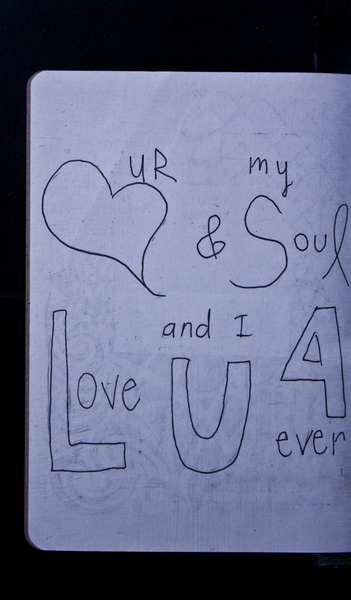 UR my
& Soul
and I
Love U 4
ever